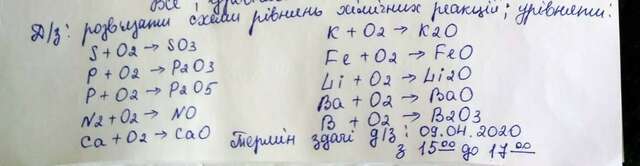 Д/з: розв'язати схеми рівнень хімічних реакцій; урівняти:
S + O2 → SO3
P + O2 → P2O3
P + O2 → P2O5
N2 + O2 → NO
Ca + O2 → CaO
K + O2 → K2O
Fe + O2 → FeO
Li + O2 → Li2O
Ba + O2 → BaO
B + O2 → B2O3
Термін здачі д/з: 09.04.2020
з 15 00 до 17 00